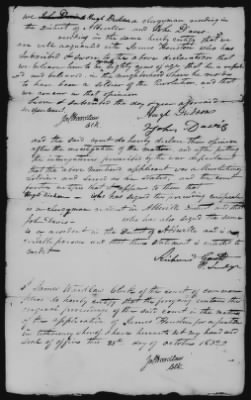 We Hugh Dickson a clergyman residing in
the District of Abbeville and John Davis
residing in the same hereby certify that we
are well acquainted with James Houston who has
subscribed & sworn to the above declaration that
we believe him to be years of age that he is reputed
and believed in the neighborhood where he resides
to have been a soldier of the Revolution, and that
we concur in that opinion
Sworn & subscribed the day & year aforesaid
in open court
Hugh Dickson
Jas Wardlaw
Clk
John Davis
and the said court do hereby declare their opinion
after the investigation of the matter and after putting
the interrogatories prescribed by the war department
that the above named applicant was a Revolutionary
soldier and served as he states, and the court
further certifies that it appears to them that
Hugh Dickson who has signed the preceding certificate
is a clergyman resident in Abbeville District and that
John Davis who has also signed the same
is a resident in the District of Abbeville and is a
credible person and that their statement is entitled to
credit
Richard Gantt
I James Wardlaw Clerk of the court of common
pleas do hereby certify that the foregoing contains the
original proceedings of the said court in the matter
of the application of James Houston for a pension
in testimony whereof I have hereunto set my hand and
seal of office this day of October 1832
Jas Wardlaw
Clk